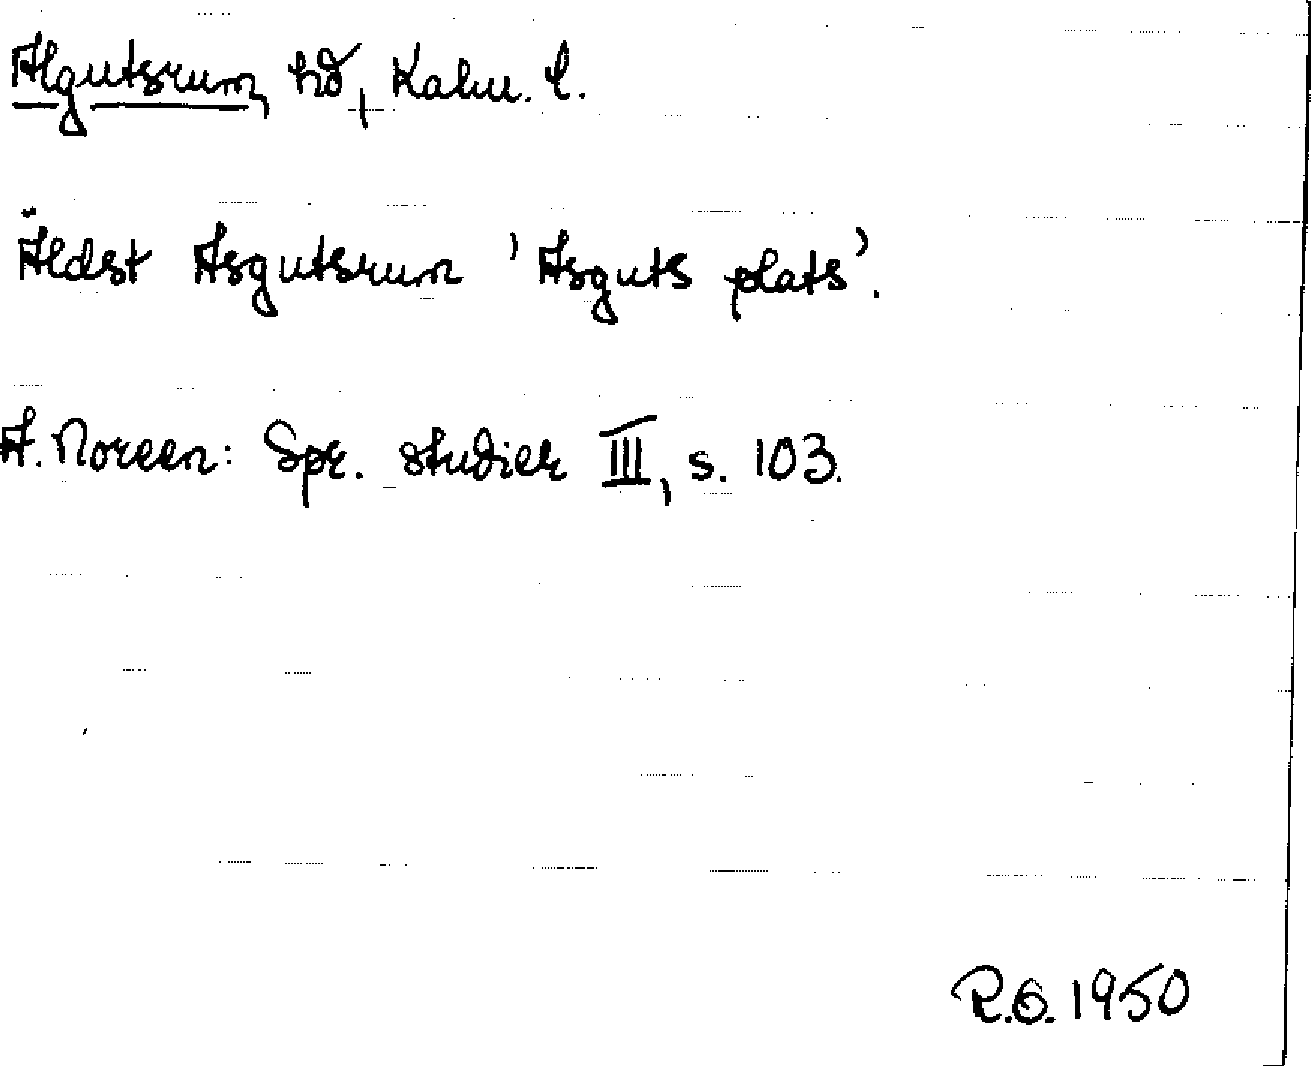 Algutsrum, hd, Kalm. l.
Äldst Asgutsrum 'Asguts plats'.
A. Noreen: Spr. studier III, s. 103.
R.G. 1950